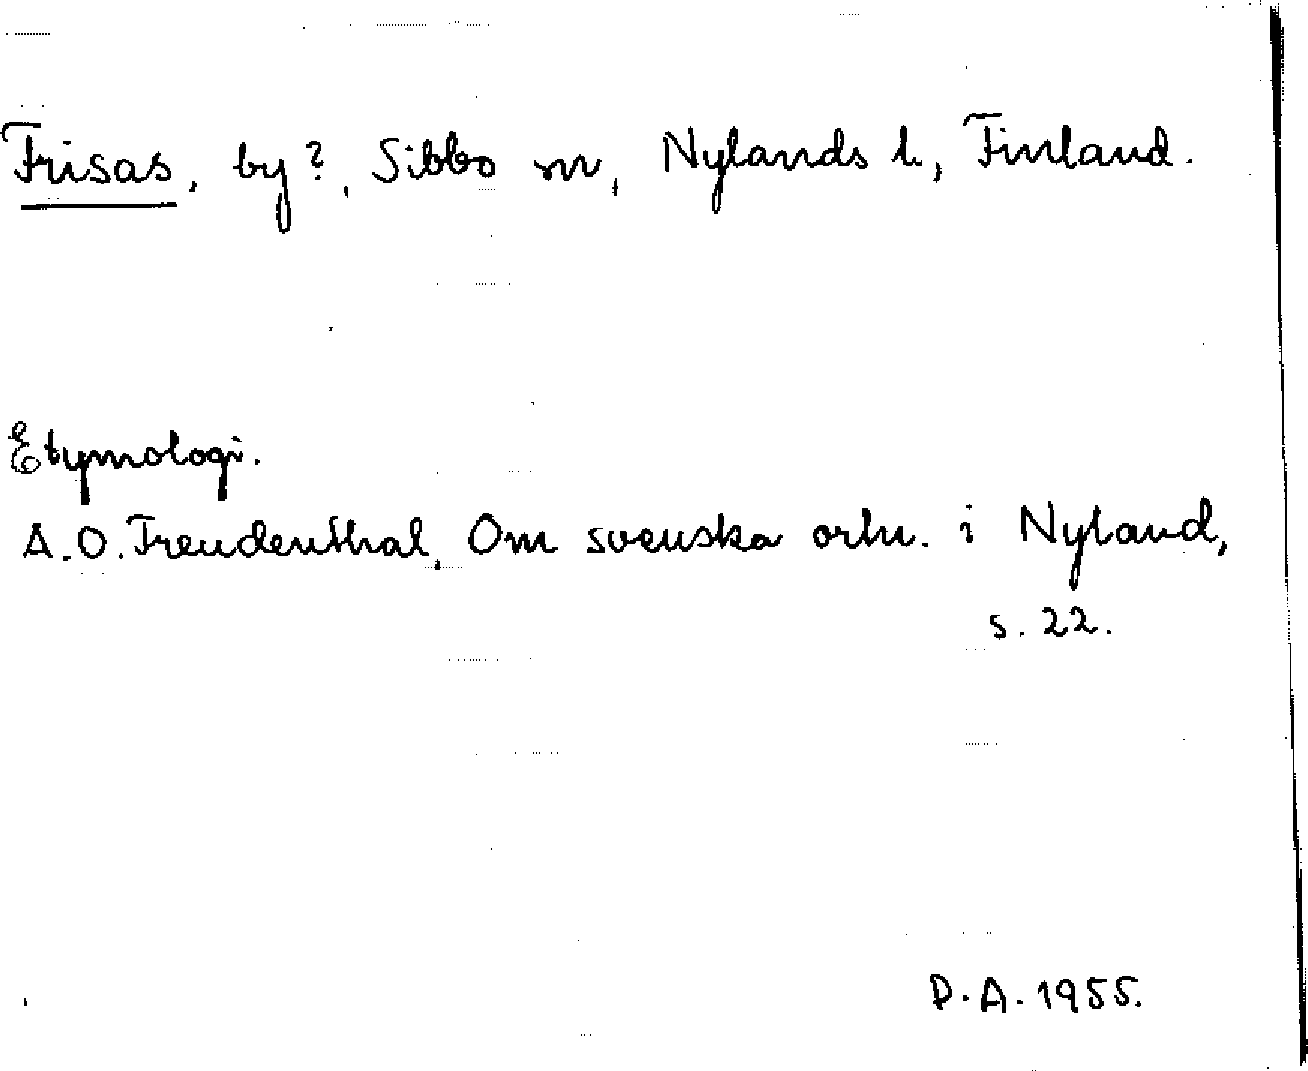 Frisas, by?, Sibbo sn, Nylands l., Finland.
Etymologi.
A.O. Freudenthal, Om svenska ortn. i Nyland,
s. 22.
D.A. 1955.